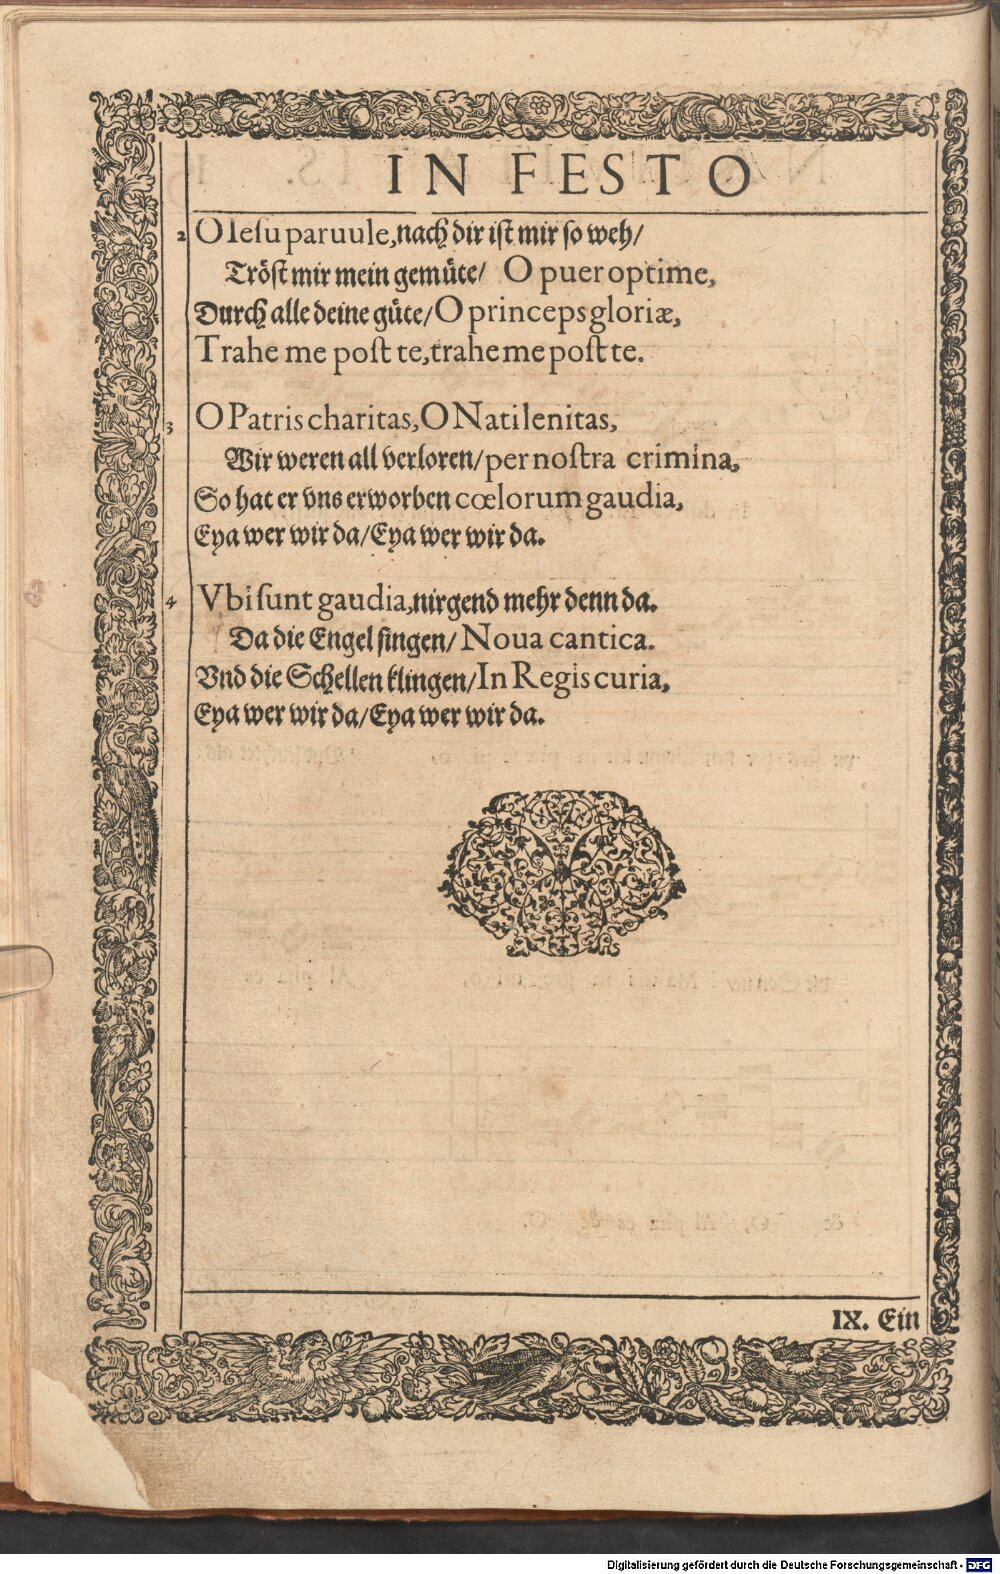 IN FESTO
2 O Iesu paruule, nach dir ist mir so weh/
Tröst mir mein gemüte/ O puer optime,
Durch alle deine güte/ O princeps gloriæ,
Trahe me post te, trahe me post te.
3 O Patris charitas, O Nati lenitas,
Wir weren all verloren/ per nostra crimina,
So hat er vns erworben cœlorum gaudia,
Eya wer wir da/ Eya wer wir da.
4 Vbi sunt gaudia, nirgend mehr denn da.
Da die Engel singen/ Noua cantica.
Vnd die Schellen klingen/ In Regis curia,
Eya wer wir da/ Eya wer wir da.
IX. Ein
Digitalisierung gefördert durch die Deutsche Forschungsgemeinschaft - DFG